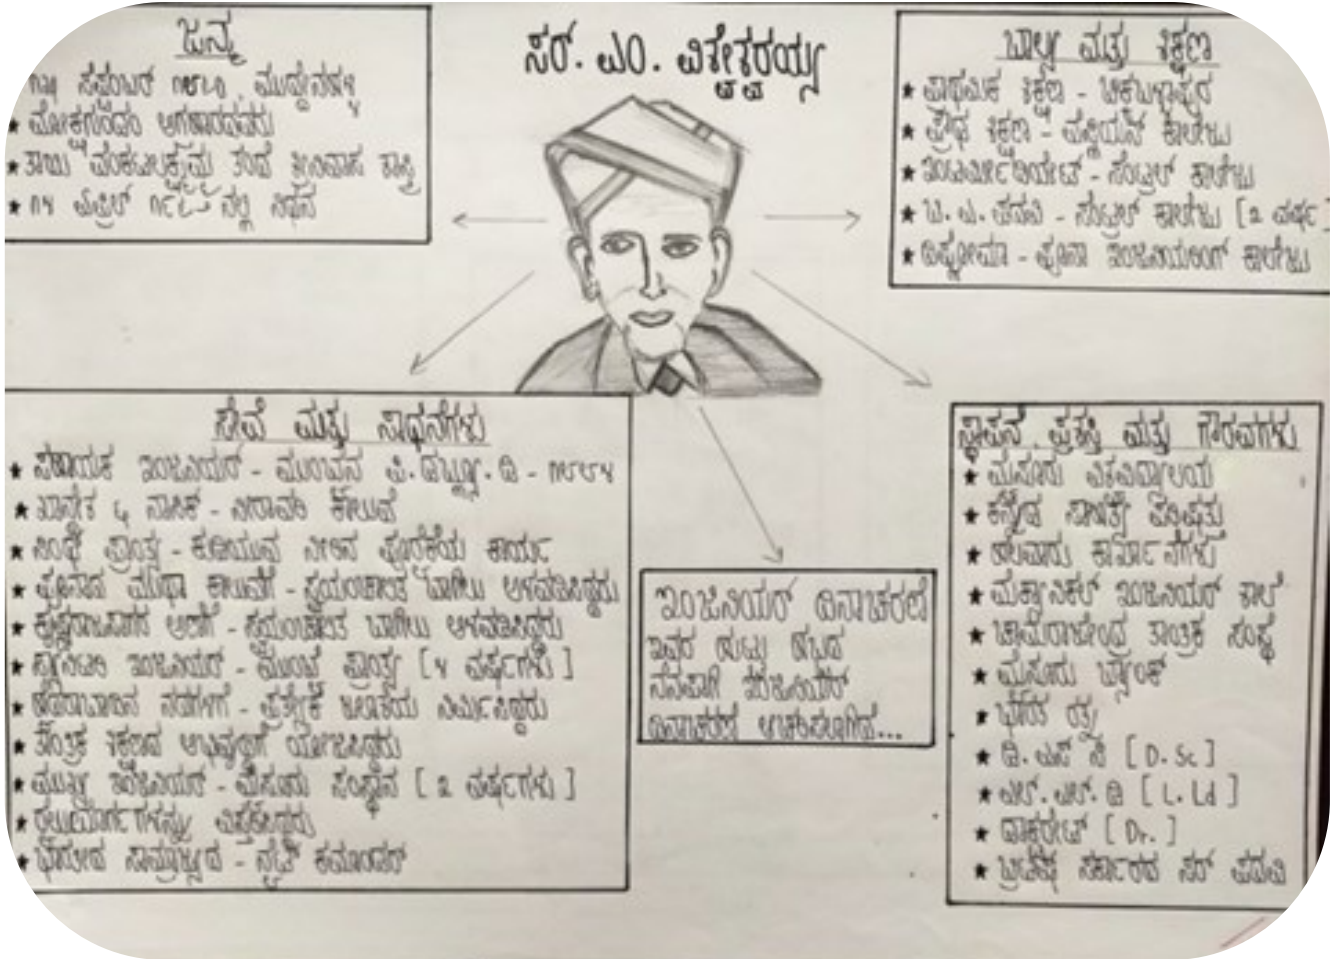 ಸರ್. ಎಂ. ವಿಶ್ವೇಶ್ವರಯ್ಯ
ಜನ್ಮ
೧೫ ಸೆಪ್ಟೆಂಬರ್ ೧೮೬೧, ಮುದ್ದೇನಹಳ್ಳಿ
★ ಮೋಕ್ಷಗುಂಡಂ ಅಗ್ರಹಾರದವರು
★ ತಾಯಿ ವೆಂಕಟಲಕ್ಷ್ಮಮ್ಮ ತಂದೆ ಶ್ರೀನಿವಾಸ ಶಾಸ್ತ್ರಿ
★ ೧೪ ಏಪ್ರಿಲ್ ೧೯೬೨ ನಲ್ಲಿ ನಿಧನ
ಬಾಲ್ಯ ಮತ್ತು ಶಿಕ್ಷಣ
★ ಪ್ರಾಥಮಿಕ ಶಿಕ್ಷಣ - ಚಿಕ್ಕಬಳ್ಳಾಪುರ
★ ಪ್ರೌಢ ಶಿಕ್ಷಣ - ವೆಸ್ಲಿಯನ್ ಕಾಲೇಜು
★ ಇಂಟರ್ಮೀಡಿಯೇಟ್ - ಸೆಂಟ್ರಲ್ ಕಾಲೇಜು
★ ಬಿ. ಎ. ಪದವಿ - ಸೆಂಟ್ರಲ್ ಕಾಲೇಜು [೨ ವರ್ಷ]
★ ಡಿಪ್ಲೋಮಾ - ಪೂನಾ ಇಂಜಿನಿಯರಿಂಗ್ ಕಾಲೇಜು
ಸೇವೆ ಮತ್ತು ಸಾಧನೆಗಳು
★ ಸಹಾಯಕ ಇಂಜಿನಿಯರ್ - ಮುಂಬೈನ ಪಿ. ಡಬ್ಲ್ಯೂ. ಡಿ - ೧೮೮೪
★ ಖಾನ್ದೇಶ & ನಾಸಿಕ - ನೀರಾವರಿ ಕೆಲಸ
★ ಸಿಂಧ್ ಪ್ರಾಂತ್ಯ - ಕುಡಿಯುವ ನೀರಿನ ಪೂರೈಕೆಯ ಕಾರ್ಯ
★ ಪೂನಾದ ಮುಥಾ ಕಾಲುವೆಗೆ - ಸ್ವಯಂಚಾಲಿತ ಬಾಗಿಲು ಅಳವಡಿಸಿದ್ದರು
★ ಕೃಷ್ಣರಾಜಸಾಗರ ಅಣೆಗೆ - ಸ್ವಯಂಚಾಲಿತ ಬಾಗಿಲು ಅಳವಡಿಸಿದ್ದರು
★ ಸ್ಯಾನಿಟರಿ ಇಂಜಿನಿಯರ್ - ಮುಂಬೈ ಪ್ರಾಂತ್ಯ [೪ ವರ್ಷಗಳು]
★ ಹೈದರಾಬಾದಿನ ನದಿಗಳಿಗೆ - ಪ್ರತ್ಯೇಕ ಜಲಾಶಯ ನಿರ್ಮಿಸಿದ್ದರು
★ ತಾಂತ್ರಿಕ ಶಿಕ್ಷಣದ ಅಭಿವೃದ್ಧಿಗೆ ಯೋಜಿಸಿದ್ದರು
★ ಮುಖ್ಯ ಇಂಜಿನಿಯರ್ - ಮೈಸೂರು ಸಂಸ್ಥಾನ [೩ ವರ್ಷಗಳು]
★ ರೈಲುಮಾರ್ಗಗಳನ್ನು ವಿಸ್ತರಿಸಿದ್ದರು
★ ಭಾರತೀಯ ಸಾಮ್ರಾಜ್ಯದ - ನೈಟ್ ಕಮಾಂಡರ್
ಇಂಜಿನಿಯರ್ ದಿನಾಚರಣೆ
ಇವರ ಹುಟ್ಟು ಹಬ್ಬದ
ನೆನಪಿಗೆ ಇಂಜಿನಿಯರ್
ದಿನಾಚರಣೆ ಆಚರಿಸಲಾಗಿದೆ...
ಸ್ಥಾಪನೆ, ಪ್ರಶಸ್ತಿ ಮತ್ತು ಗೌರವಗಳು
★ ಮೈಸೂರು ವಿಶ್ವವಿದ್ಯಾಲಯ
★ ಕನ್ನಡ ಸಾಹಿತ್ಯ ಪರಿಷತ್ತು
★ ಹಲವಾರು ಕಾರ್ಖಾನೆಗಳು
★ ಮೆಕ್ಯಾನಿಕಲ್ ಇಂಜಿನಿಯರ್ ಶಾಲೆ
★ ಚಾಮರಾಜೇಂದ್ರ ತಾಂತ್ರಿಕ ಸಂಸ್ಥೆ
★ ಮೈಸೂರು ಬ್ಯಾಂಕ್
★ ಭಾರತ ರತ್ನ
★ ಡಿ. ಎಸ್ ಸಿ [D. Sc]
★ ಎಲ್. ಎಲ್. ಡಿ [L. Ld]
★ ಡಾಕ್ಟರೇಟ್ [Dr.]
★ ಬ್ರಿಟಿಷ್ ಸರ್ಕಾರದ ಸರ್ ಪದವಿ